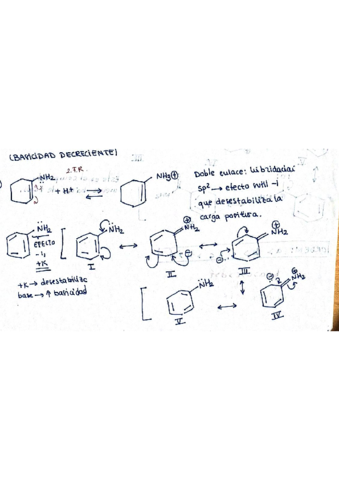 (BASICIDAD DECRECIENTE)
2.T.R.
NH₂
+ H+
NH₃⊕
Doble enlace: hibridación
sp² → efecto sutil -i
que desestabiliza la
carga positiva.
NH₂
EFECTO
-i,
+K
NH₂
I
⊕
NH₂
⊖
II
⊕
NH₂
⊖
III
+K → desestabiliza
base → ↑ basicidad
NH₂
V
⊖
⊕
NH₂
IV